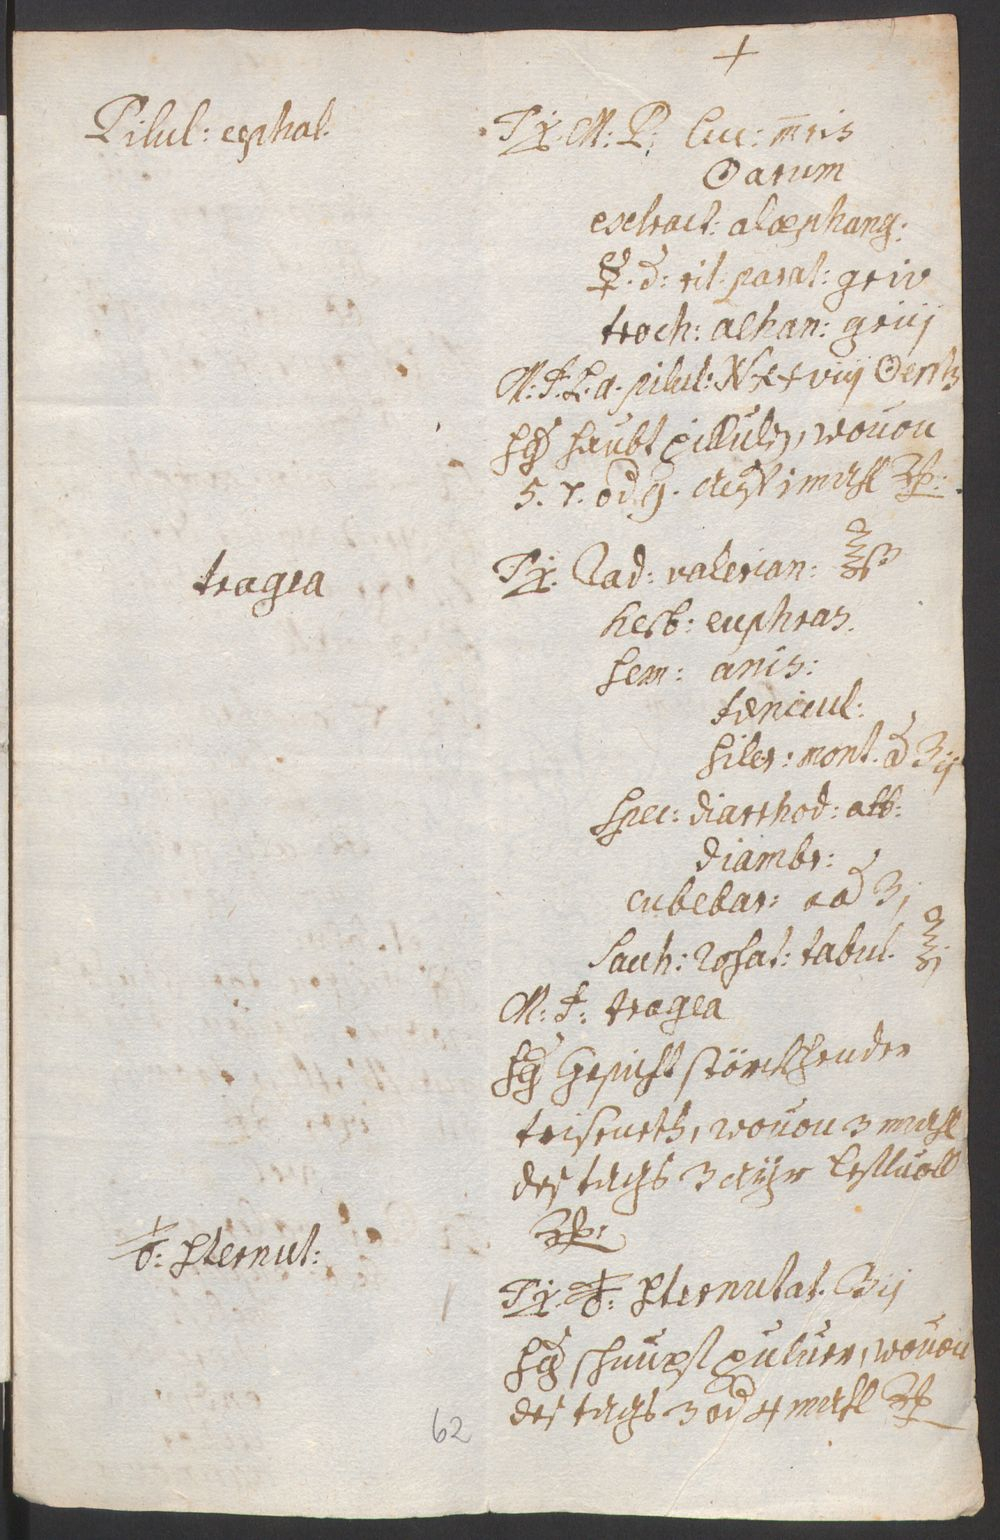 +
Pilul: cephal.
℞. M: P: Luc: m̅ris
☉arum
extract: aloephang:
☿. d: rit. parat: gr iv
troch: alhan: gr iij
M: F. L. a. pilul: N xxviij ☉ent
Sig haubt pillulen, wovon
5. 7. od 9. auf 1 mahl Zp:
tragea
℞. Rad: valerian: ℥ß
herb: euphras.
sem: anis:
foenicul:
siler: mont. ā ʒij
spec: diarrhod: abb:
diambr:
cubebar: aā ʒj
Sacch: rosat: tabul. ℥j
M: F: tragea
Sig Gesicht störckhender
triseneth, wovon 3 mahl
des tags 3 Leffluoll
Zp:
♁: sternut:
℞. ♁: sternutat. ʒij
Sig schnupf puluer, wovon
des tags 3 od 4 mahl Zp
62